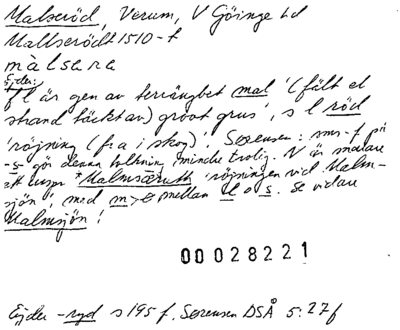 Malseröd, Verum, V Göinge hd
Mallserödt 1510-t
målsara
Ejder:
fl är gen av terrängbet mal '(fält el
strand täckt av) grovt grus', s l röd
'röjning (fr a i skog)'. Sørensen: sms-f på
-s- gör denna tolkning mindre trolig. V är snarare
att uppf *Malmsæruth 'röjningen vid Malm-
sjön', med m > e mellan l o s. Se vidare
Malmsjön!
00028221
Ejder -ryd s 195 f, Sørensen DSÅ 5:27f